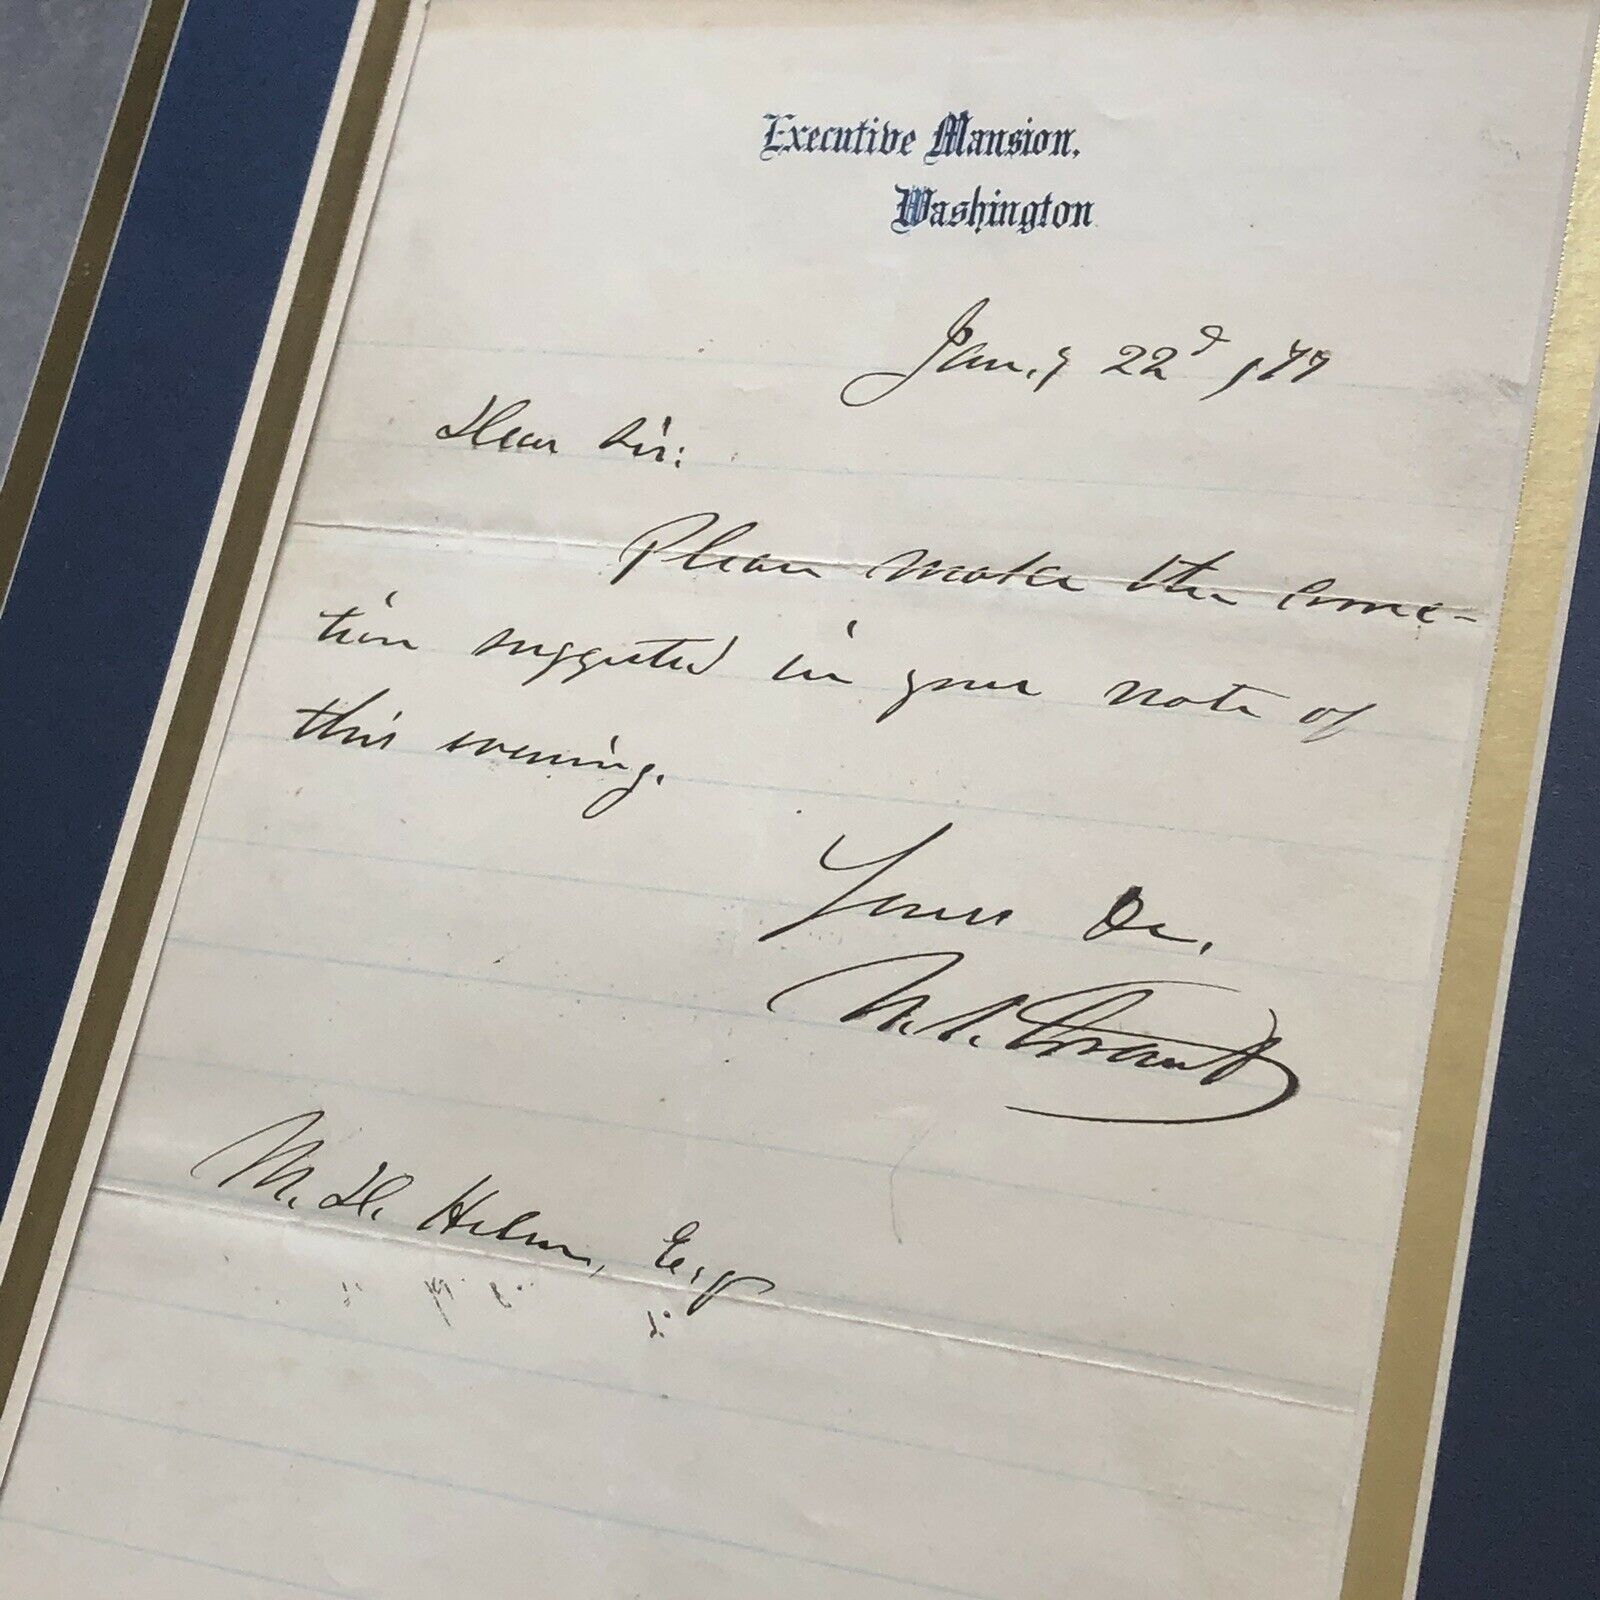 Executive Mansion,
Washington
Jan.y 22d /77
Dear Sir:
Please make the correc-
tion suggested in your note of
this evening.
Yours &c.
U. S. Grant
M. D. Helm, Esq